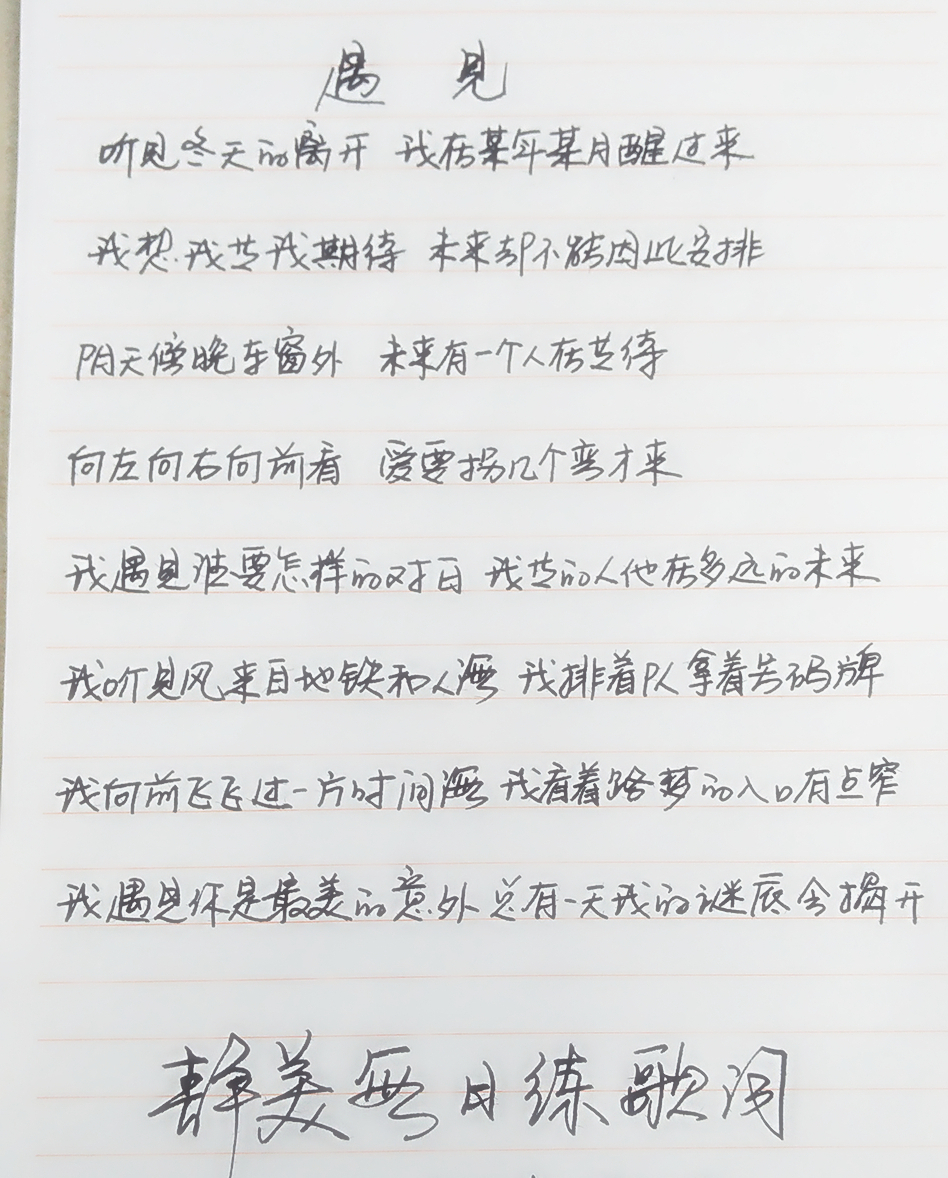 遇 见
听见冬天的离开 我在某年某月醒过来
我想我等我期待 未来却不能因此安排
阴天傍晚车窗外 未来有一个人在等待
向左向右向前看 爱要拐几个弯才来
我遇见谁要怎样的对白 我等的人他在多远的未来
我听见风来自地铁和人海 我排着队拿着号码牌
我向前飞飞过一片时间海 我看着路梦的入口有点窄
我遇见你是最美的意外 总有一天我的谜底会揭开
静美每日练歌词